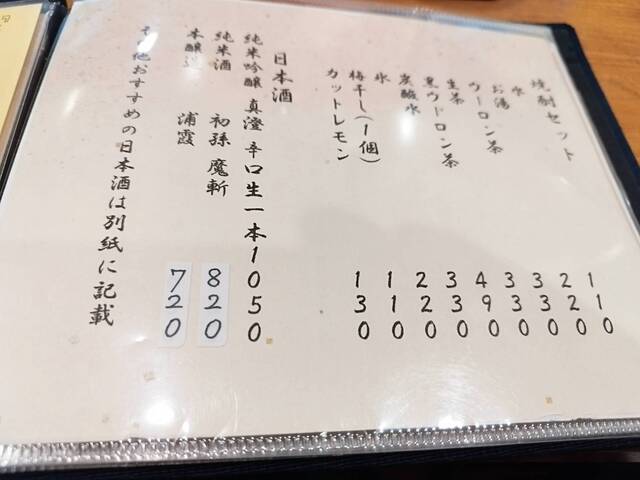 焼酎セット
水 110
お湯 220
ウーロン茶 330
生茶 330
黒ウーロン茶 490
炭酸水 330
氷 220
梅干し(1個) 110
カットレモン 130
日本酒
純米吟醸 真澄 辛口生一本 1050
純米酒 初孫 魔斬 820
本醸造 浦霞 720
その他おすすめの日本酒は別紙に記載